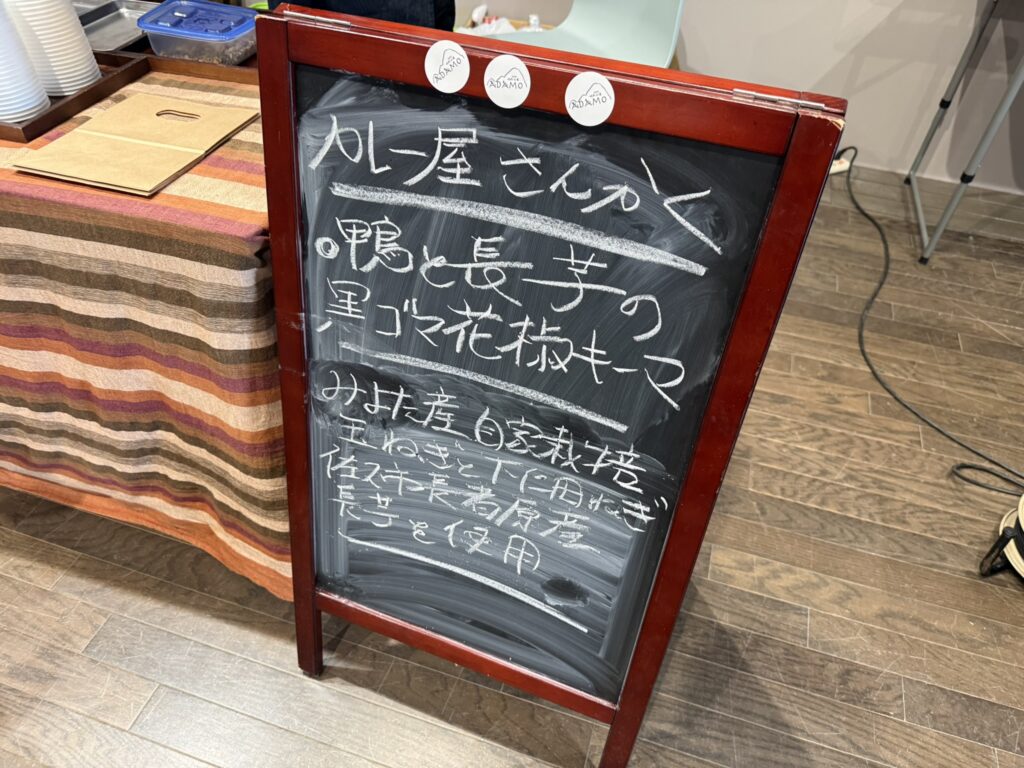 ADAMO
ADAMO
ADAMO
カレー屋 さんかく
鴨と長芋の
黒ゴマ花椒キーマ
みよた産 自家栽培
玉ねぎと下仁田ねぎ
佐久市長者原産
長芋を使用